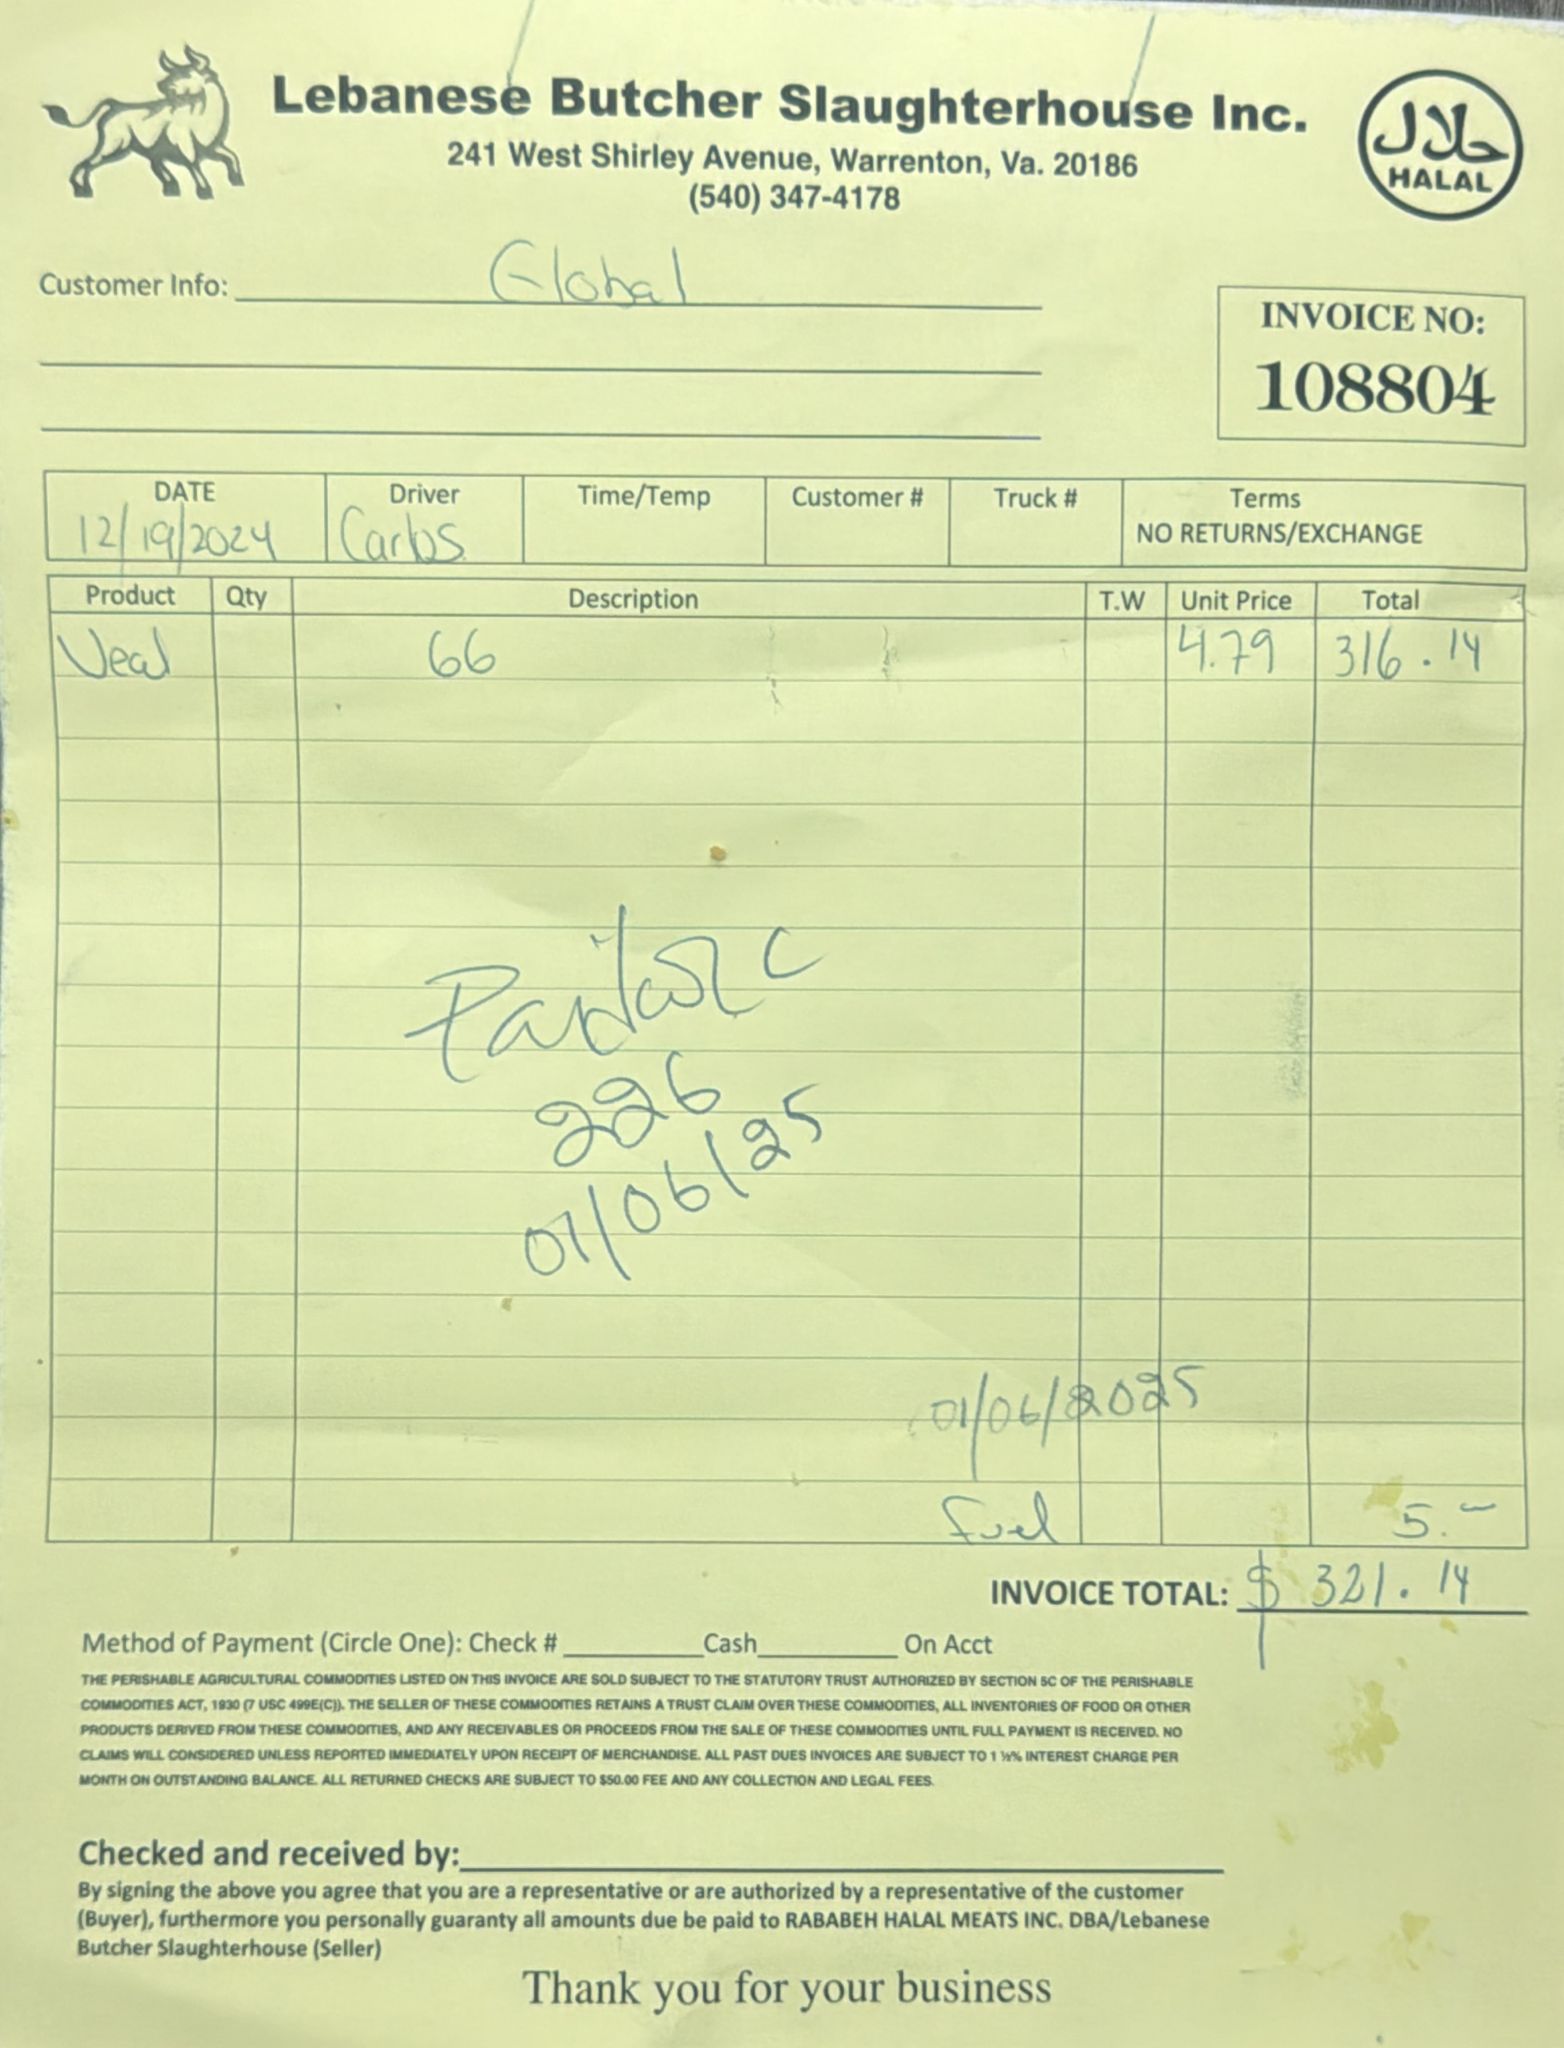 Lebanese Butcher Slaughterhouse Inc.
241 West Shirley Avenue, Warrenton, Va. 20186
(540) 347-4178
حلال
HALAL
Customer Info: Global
INVOICE NO:
108804
DATE Driver Time/Temp Customer # Truck # Terms
12/19/2024 Carlos NO RETURNS/EXCHANGE
Product Qty Description T.W Unit Price Total
Veal 66 4.79 316.14
226
01/06/25
01/06/2025
Fuel 5.-
INVOICE TOTAL: $ 321.14
Method of Payment (Circle One): Check #________Cash________ On Acct
THE PERISHABLE AGRICULTURAL COMMODITIES LISTED ON THIS INVOICE ARE SOLD SUBJECT TO THE STATUTORY TRUST AUTHORIZED BY SECTION 5C OF THE PERISHABLE
COMMODITIES ACT, 1930 (7 USC 499E(C)). THE SELLER OF THESE COMMODITIES RETAINS A TRUST CLAIM OVER THESE COMMODITIES, ALL INVENTORIES OF FOOD OR OTHER
PRODUCTS DERIVED FROM THESE COMMODITIES, AND ANY RECEIVABLES OR PROCEEDS FROM THE SALE OF THESE COMMODITIES UNTIL FULL PAYMENT IS RECEIVED. NO
CLAIMS WILL CONSIDERED UNLESS REPORTED IMMEDIATELY UPON RECEIPT OF MERCHANDISE. ALL PAST DUES INVOICES ARE SUBJECT TO 1 ½% INTEREST CHARGE PER
MONTH ON OUTSTANDING BALANCE. ALL RETURNED CHECKS ARE SUBJECT TO $50.00 FEE AND ANY COLLECTION AND LEGAL FEES.
Checked and received by:
By signing the above you agree that you are a representative or are authorized by a representative of the customer
(Buyer), furthermore you personally guaranty all amounts due be paid to RABABEH HALAL MEATS INC. DBA/Lebanese
Butcher Slaughterhouse (Seller)
Thank you for your business